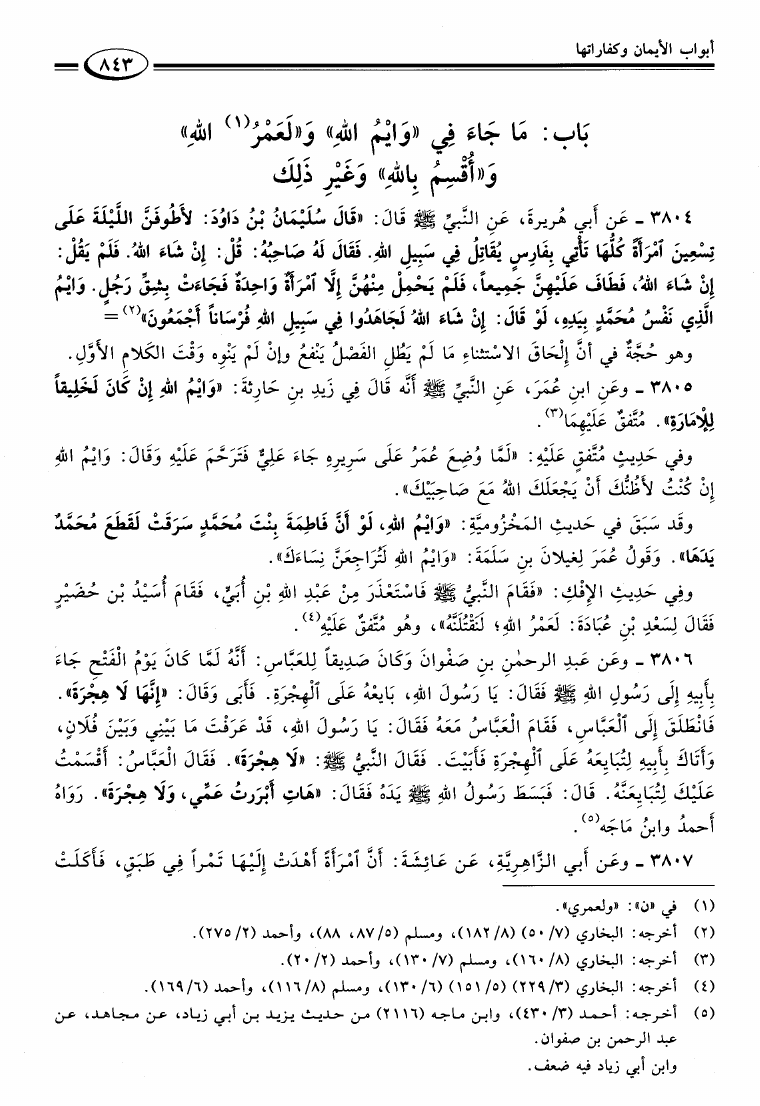 أبواب الأيمان وكفاراتها
٨٤٣
بَاب: مَا جَاءَ فِي «وَايْمُ اللهِ» وَ«لَعَمْرُ(١) اللهِ»
وَ«أُقْسِمُ بِاللهِ» وَغَيْرِ ذَلِكَ
٣٨٠٤ ـ عَن أبي هُريرةَ، عَنِ النَّبيِّ ﷺ قَالَ: «قَالَ سُلَيْمَانُ بْنُ دَاوُدَ: لأَطُوفَنَّ اللَّيْلَةَ عَلَى
تِسْعِينَ ٱمْرَأَةً كُلُّهَا تَأْتِي بِفَارِسٍ يُقَاتِلُ فِي سَبِيلِ اللهِ. فَقَالَ لَهُ صَاحِبُهُ: قُلْ: إِنْ شَاءَ اللهُ. فَلَمْ يَقُلْ:
إِنْ شَاءَ اللهُ، فَطَافَ عَلَيْهِنَّ جَمِيعاً، فَلَمْ يَحْمِلْ مِنْهُنَّ إِلَّا ٱمْرَأَةٌ وَاحِدَةٌ فَجَاءَتْ بِشِقِّ رَجُلٍ. وَايْمُ
الَّذِي نَفْسُ مُحَمَّدٍ بِيَدِهِ، لَوْ قَالَ: إِنْ شَاءَ اللهُ لَجَاهَدُوا فِي سَبِيلِ اللهِ فُرْسَاناً أَجْمَعُونَ»(٢)=
وهو حُجَّةٌ في أنَّ إِلْحَاقَ الاسْتثناءِ مَا لَمْ يَطُلِ الفَصْلُ يَنْفَعُ وإنْ لَمْ يَنْوِه وَقْتَ الكَلامِ الأوَّلِ.
٣٨٠٥ ـ وعَنِ ابنِ عُمَرَ، عَنِ النَّبيِّ ﷺ أَنَّه قَالَ في زَيدِ بنِ حَارِثةَ: «وَايْمُ اللهِ إِنْ كَانَ لَخَلِيقاً
لِلْإِمَارَةِ». مُتَّفقٌ عَلَيْهِمَا(٣).
وفي حَدِيثٍ مُتَّفقٍ عَلَيْهِ: «لَمَّا وُضِعَ عُمَرُ عَلَى سَرِيرِهِ جَاءَ عَلِيٌّ فَتَرَحَّمَ عَلَيْهِ وَقَالَ: وَايْمُ اللهِ
إِنْ كُنْتُ لأَظُنُّكَ أَنْ يَجْعَلَكَ اللهُ مَعَ صَاحِبَيْكَ».
وقَد سَبَقَ في حَديثِ المَخْزُوميَّةِ: «وَايْمُ اللهِ، لَوْ أَنَّ فَاطِمَةَ بِنْتَ مُحَمَّدٍ سَرَقَتْ لَقَطَعَ مُحَمَّدٌ
يَدَهَا». وَقَولُ عُمَرَ لِغيلانَ بنِ سَلَمَةَ: «وَايْمُ اللهِ لَتُرَاجِعَنَّ نِسَاءَكَ».
وفِي حَدِيثِ الإِفْكِ: «فَقَامَ النَّبيُّ ﷺ فَاسْتَعْذَرَ مِنْ عَبْدِ اللهِ بْنِ أُبَيٍّ، فَقَامَ أُسَيْدُ بْن حُضَيْرٍ
فَقَالَ لِسَعْدِ بْنِ عُبَادَةَ: لَعَمْرُ اللهِ؛ لَنَقْتُلَنَّهُ»، وهُو مُتَّفقٌ عَلَيْهِ(٤).
٣٨٠٦ ـ وعَن عَبدِ الرحمٰنِ بنِ صَفْوانَ وَكَانَ صَدِيقاً لِلعَبَّاسِ: أَنَّهُ لَمَّا كَانَ يَوْمُ الْفَتْحِ جَاءَ
بِأَبِيهِ إِلَى رَسُولِ اللهِ ﷺ فَقَالَ: يَا رَسُولَ اللهِ، بَايِعْهُ عَلَى ٱلْهِجْرَةِ. فَأَبَى وَقَالَ: «إِنَّهَا لَا هِجْرَةَ».
فَانْطَلَقَ إِلَى ٱلْعَبَّاسِ، فَقَامَ الْعَبَّاسُ مَعَهُ فَقَالَ: يَا رَسُولَ اللهِ، قَدْ عَرَفْتَ مَا بَيْنِي وَبَيْنَ فُلَانٍ،
وَأَتَاكَ بِأَبِيهِ لِتُبَايِعَهُ عَلَى ٱلْهِجْرَةِ فَأَبَيْتَ. فَقَالَ النَّبِيُّ ﷺ: «لَا هِجْرَةَ». فَقَالَ الْعَبَّاسُ: أَقْسَمْتُ
عَلَيْكَ لِتُبَايِعَنَّهُ. قَالَ: فَبَسَطَ رَسُولُ اللهِ ﷺ يَدَهُ فَقَالَ: «هَاتِ أَبْرَرتُ عَمِّي، وَلَا هِجْرَةَ». رَوَاهُ
أحمدُ وابنُ مَاجَه(٥).
٣٨٠٧ ـ وعَن أبي الزَّاهِريَّةِ، عَن عَائِشَةَ: أَنَّ ٱمْرَأَةً أَهْدَتْ إِلَيْهَا تَمْراً فِي طَبَقٍ، فَأَكَلَتْ
(١) في «ن»: «ولعمري».
(٢) أخرجه: البخاري (٥٠/٧) (١٨٢/٨)، ومسلم (٨٧/٥، ٨٨)، وأحمد (٢٧٥/٢).
(٣) أخرجه: البخاري (١٦٠/٨)، ومسلم (١٣٠/٧)، وأحمد (٢٠/٢).
(٤) أخرجه: البخاري (٢٢٩/٣) (١٥١/٥) (١٣٠/٦)، ومسلم (١١٦/٨)، وأحمد (١٦٩/٦).
(٥) أخرجه: أحمد (٤٣٠/٣)، وابن ماجه (٢١١٦) من حديث يزيد بن أبي زياد، عن مجاهد، عن
عبد الرحمن بن صفوان.
وابن أبي زياد فيه ضعف.